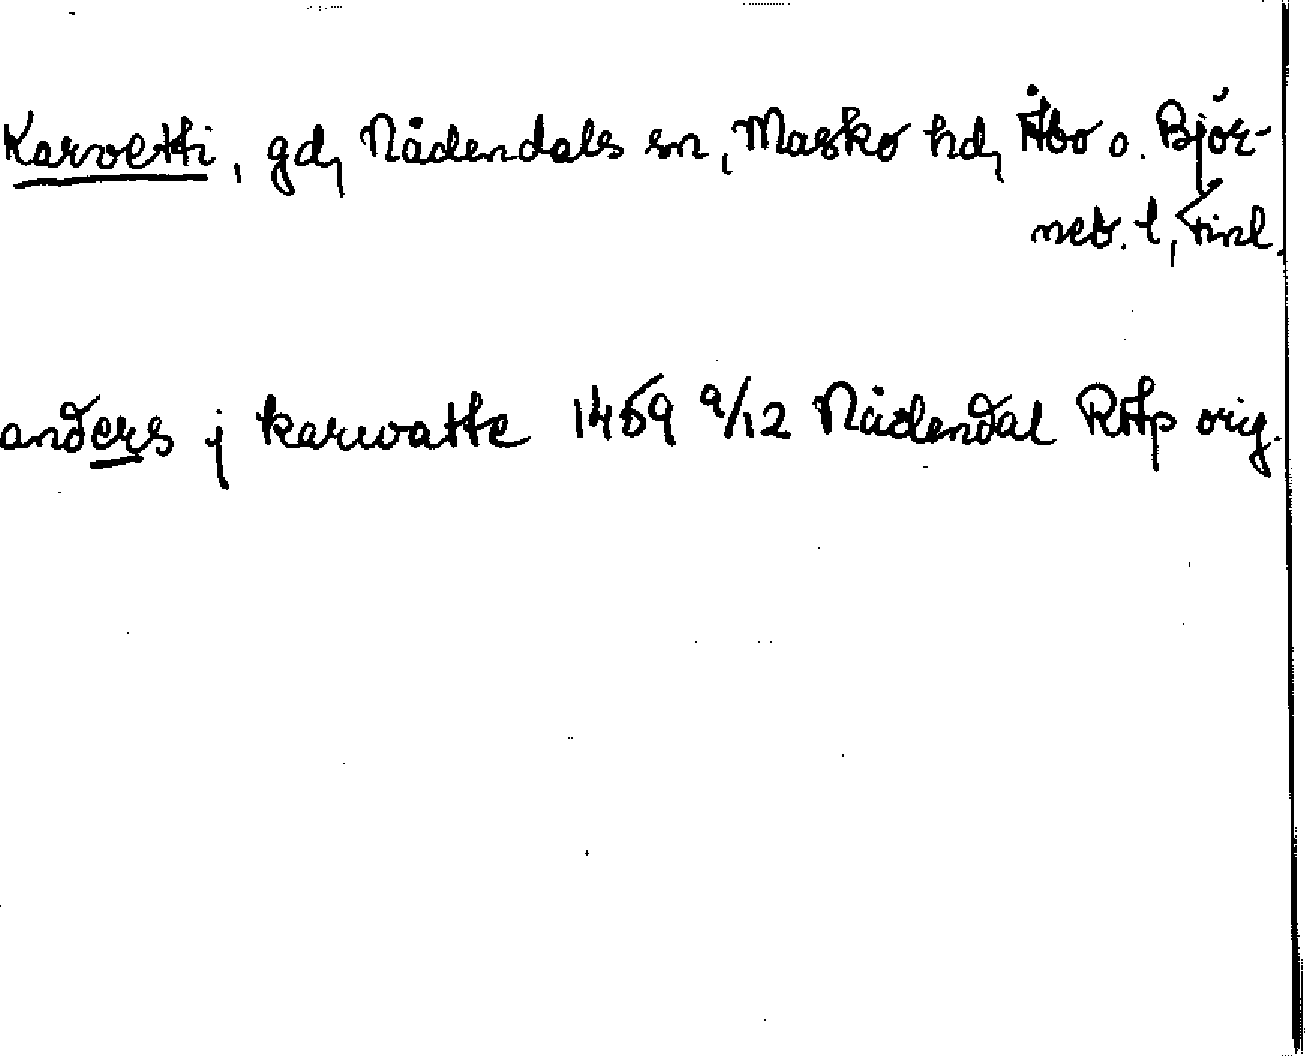 Karvetti, gd, Nådendals sn, Masko hd, Åbo o. Björ-
neb. l, Finl.
anders j karwatte 1469 9/12 Nådendal RAp orig.